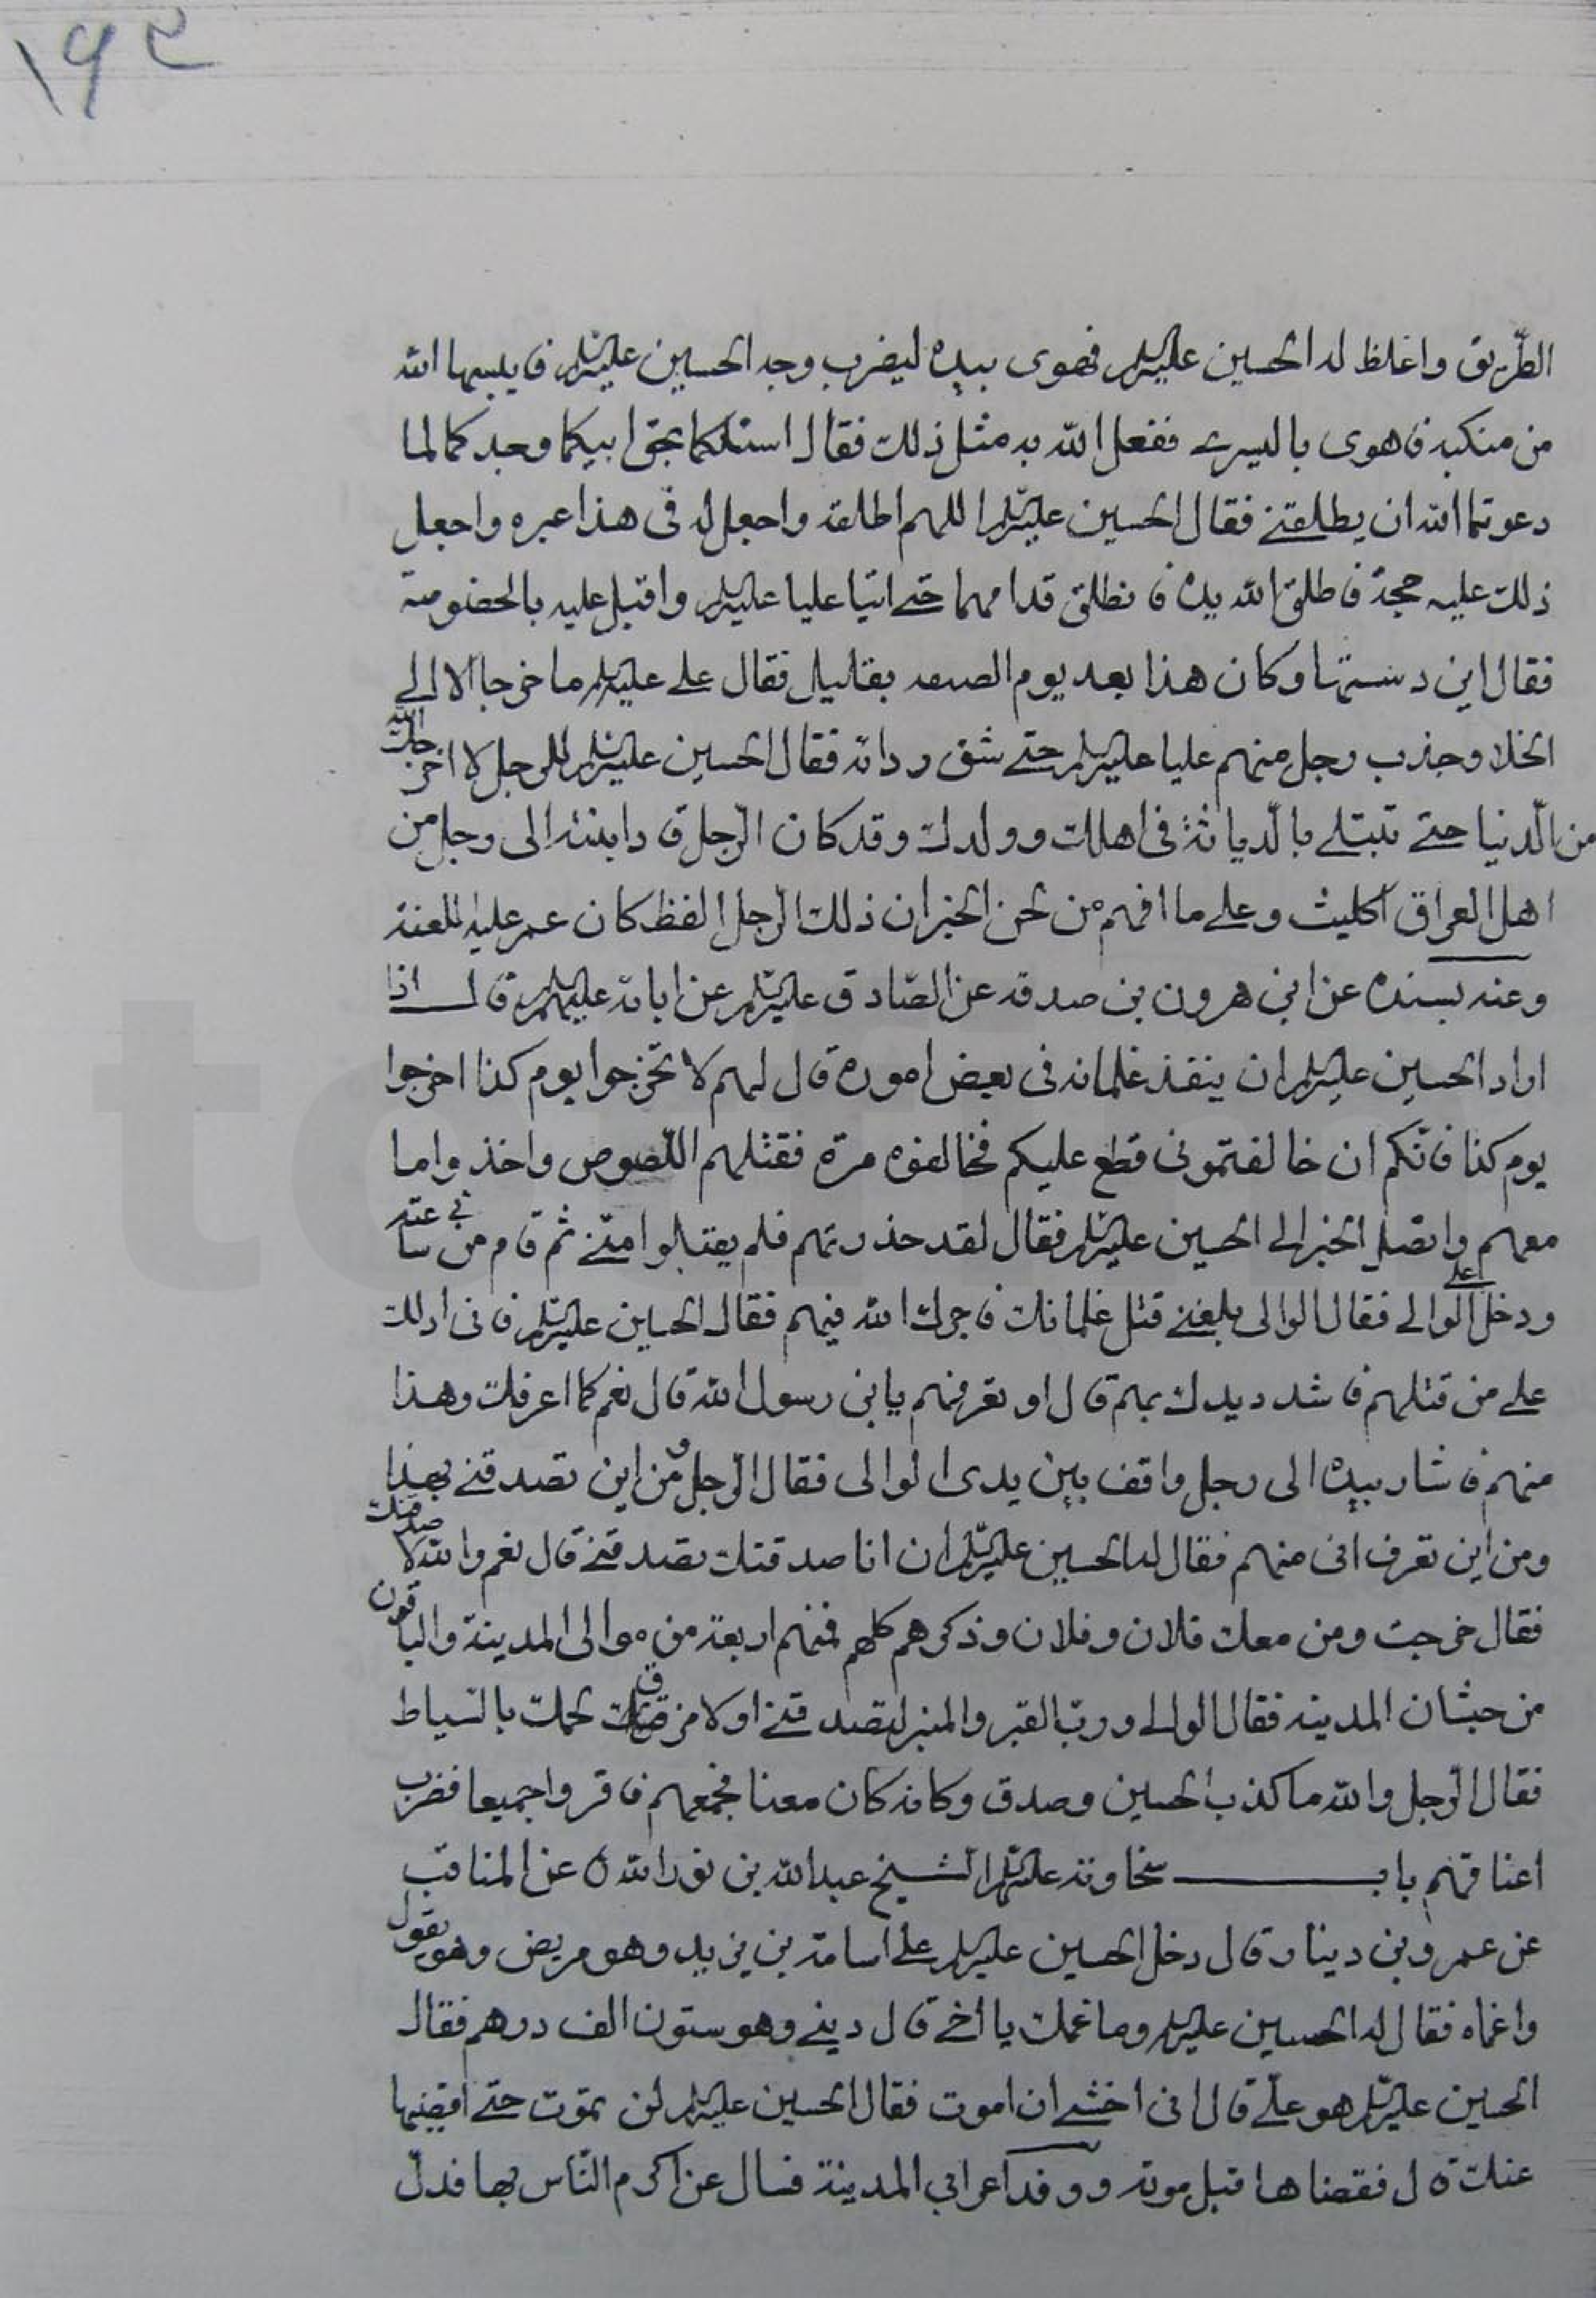 ١٩٢
الطّريق واغلظ له الحسين عليه السلم فهوى بيده ليضرب وجه الحسين عليه السلم فايبسها الله
من منكبه فاهوى باليسرى ففعل الله به مثل ذلك فقال اسئلكما بحق ابيكما وجدكما لما
دعوتما الله ان يطلقنى فقال الحسين عليه السلم اللهم اطلقه واجعل له فى هذا عبره واجعل
ذلك عليه حجة فاطلق الله يده فانطلق قدامهما حتى اتيا عليا عليه السلم واقبل عليه بالخصومة
فقال اين دسستهما وكان هذا بعد يوم الصفه بقليل فقال على عليه السلم ما خرجا الا الى
الخلا وجذب رجل منهم عليا عليه السلم حتى شق رداءه فقال الحسين عليه السلم للرجل لا اخرجك الله
من الدنيا حتى تبتلى بالدياثة فى اهلك وولدك وقد كان الرجل قاد ابنته الى رجل من
اهل العراق اكليث وعلى ما افهم من لحن الخبر ان ذلك الرجل الفظ كان عمر عليه اللعنة
وعنه بسنده عن ابى هرون بن صدقه عن الصّادق عليه السلم عن ابائه عليهم السلم قال اذا
اراد الحسين عليه السلم ان ينفذ غلمانه فى بعض اموره قال لهم لا تخرجوا يوم كذا اخرجوا
يوم كذا فانكم ان خالفتمونى قطع عليكم فخالفوه مرة فقتلهم اللصوص واخذوا ما
معهم واتصل الخبر الى الحسين عليه السلم فقال لقد حذرتهم فلم يقبلوا منّى ثم قام من ساعته
ودخل على الوالى فقال الوالى بلغنى قتل غلمانك فاجرك الله فيهم فقال الحسين عليه السلم فانى ادلك
على من قتلهم فاشدد يدك بهم قال او تعرفهم يابن رسول الله قال نعم كما اعرفك وهذا
منهم فاشار بيده الى رجل واقف بين يدى الوالى فقال الرجل ومن اين تصدقنى بهذا
ومن اين تعرف انى منهم فقال له الحسين عليه السلم ان انا صدقتك تصدقنى قال نعم والله لاصدقنك
فقال خرجت ومن معك فلان وفلان وذكرهم كلهم فمنهم اربعة من موالى المدينة والباقون
من حبشان المدينه فقال الوالى ورب القبر والمنبر لتصدقنى او لامزقنك لحمك بالسياط
فقال الرجل والله ما كذب الحسين وصدق وكانه كان معنا فجمعهم فاقروا جميعا فضرب
اعناقهم باب سخاوته عليه السلم الشيخ عبدالله بن نورالله ٥ عن المناقب
عن عمرو بن دينار قال دخل الحسين عليه السلم على اسامة بن يزيد وهو مريض وهو يقول
واغماه فقال له الحسين عليه السلم وما غمك يا اخى قال دينى وهو ستون الف درهم فقال
الحسين عليه السلم هو علىّ قال انى اخشى ان اموت فقال الحسين عليه السلم لن تموت حتى اقضيها
عنك قال فقضاها قبل موته ووفد اعرابى المدينة فسال عن اكرم الناس بها فدل